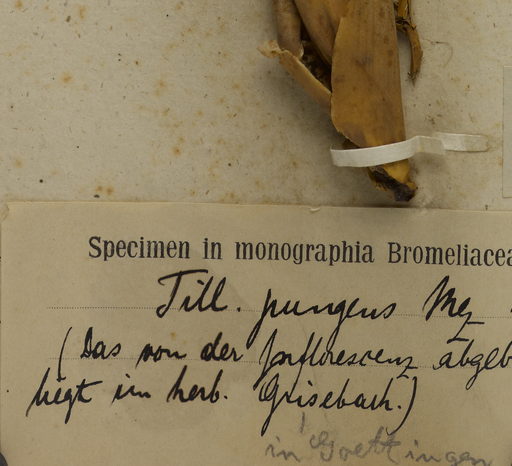 Specimen in monographia Bromeliacea
Till. pungens Mez
(Das von der Inflorescenz abgeb
liegt im herb. Grisebach.)
in Goettingen